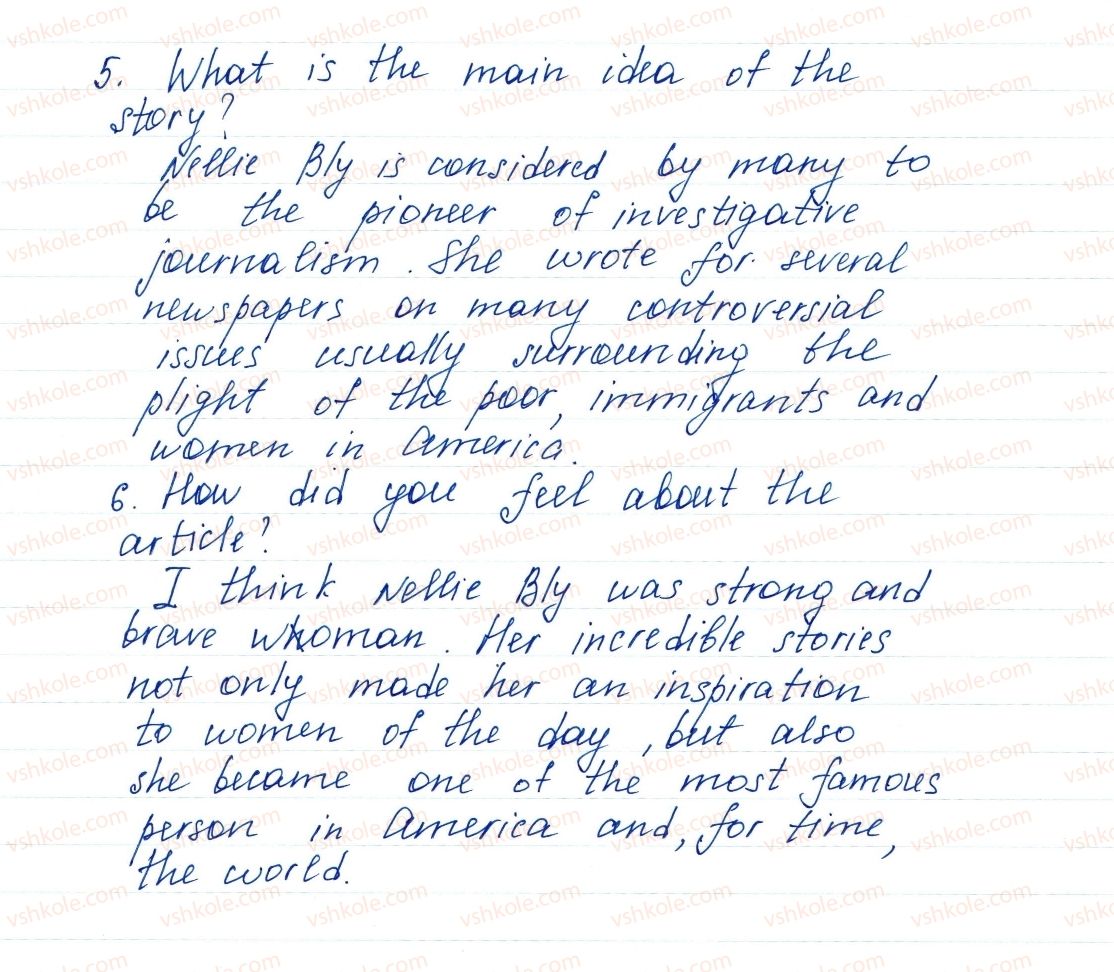 5. What is the main idea of the
story?
Nellie Bly is considered by many to
be the pioneer of investigative
journalism. She wrote for several
newspapers on many controversial
issues usually surrounding the
plight of the poor, immigrants and
women in America.
6. How did you feel about the
article?
I think Nellie Bly was strong and
brave whoman. Her incredible stories
not only made her an inspiration
to women of the day, but also
she became one of the most famous
person in America and, for time,
the world.